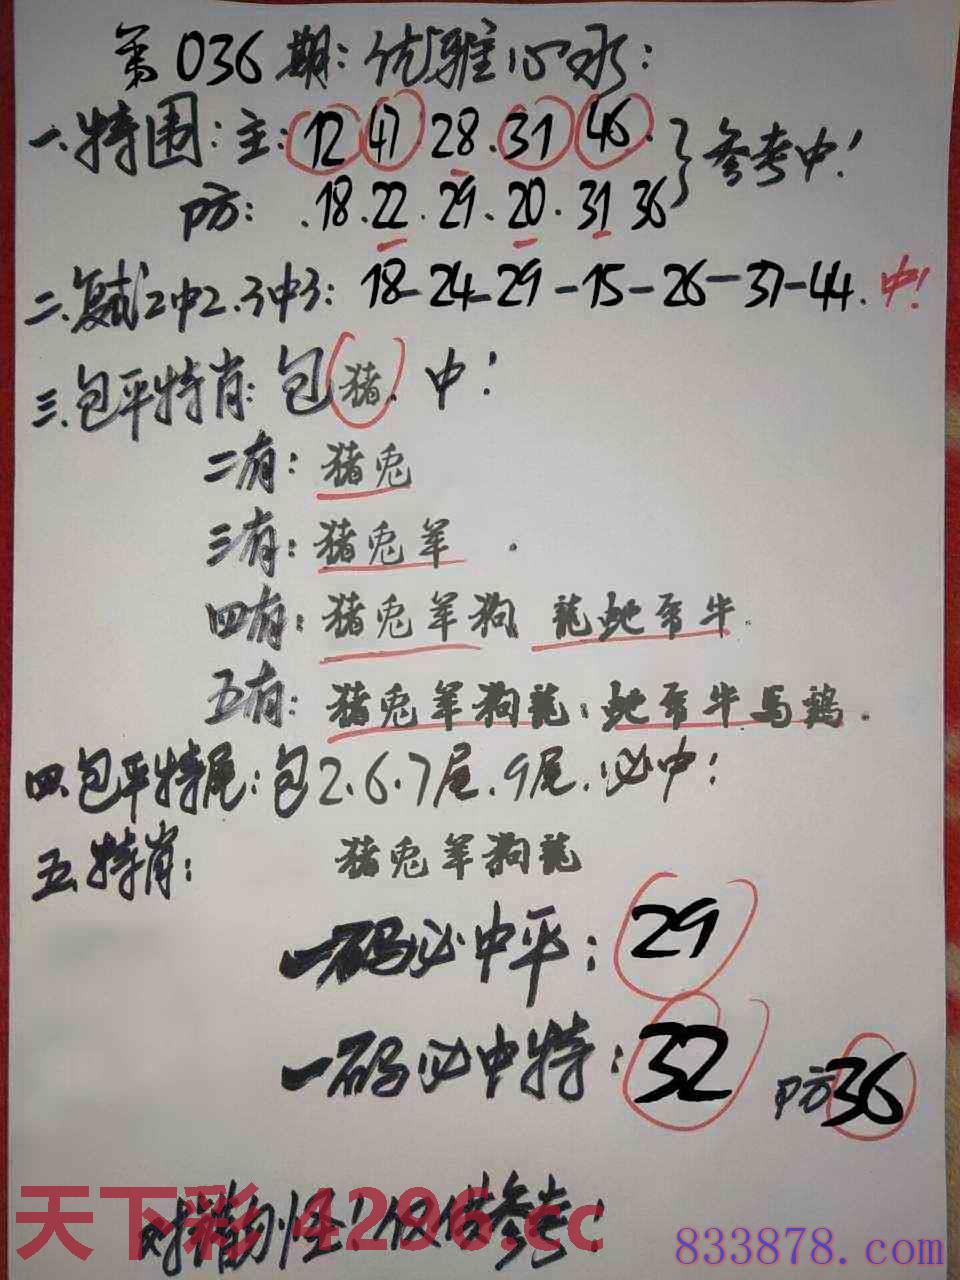 第036期:优雅心水:
一.特围:主:12 47 28.31 46.
参考中!
防:.18.22.29.20.31 36
二.复试2中2.3中3:18-24-29-15-26-37-44.中!
三.包平特肖:包猪.中!
二有:猪兔
三有:猪兔羊.
四有:猪兔羊狗 龍蛇鼠牛.
五有:猪兔羊狗龍:蛇鼠牛馬鷄.
四.包平特尾:包2.6.7尾.9尾.必中!
五.特肖:猪兔羊狗龍
一码必中平:29
一码必中特:32 防36
对错勿怪!仅供参考!
天下彩 4296.cc
833878.com